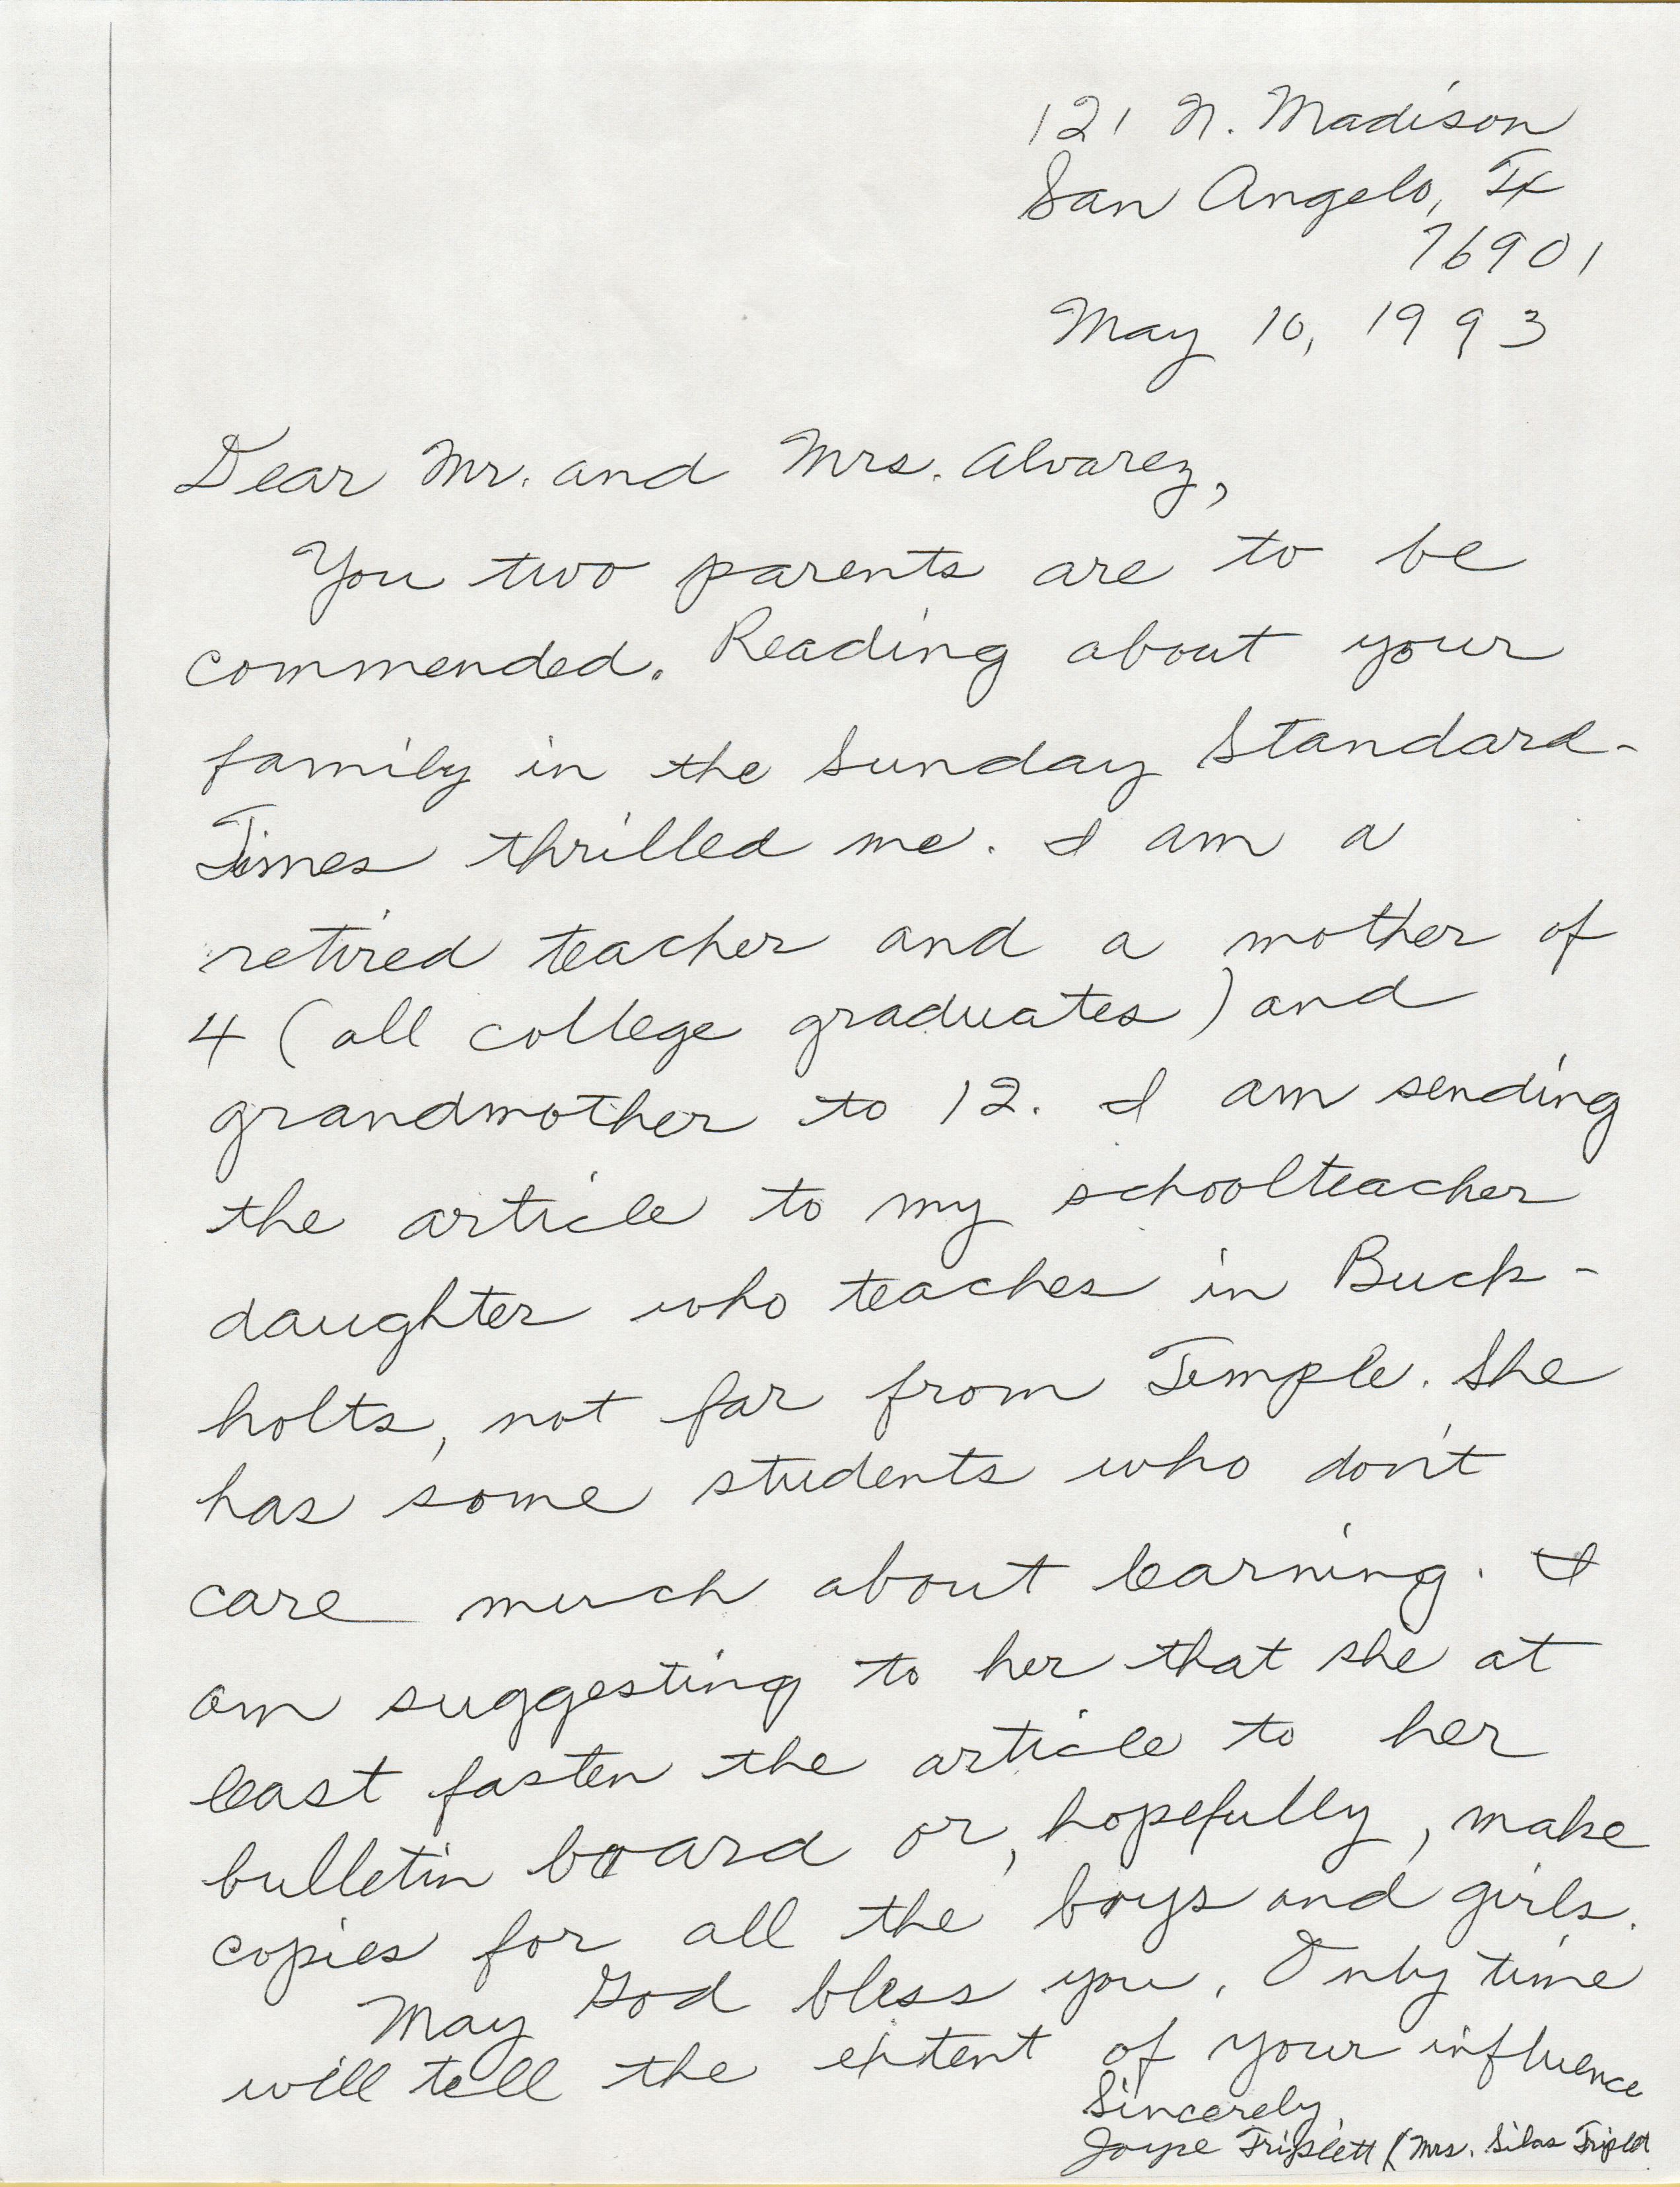 121 N. Madison
San Angelo, Tx
76901
May 10, 1993
Dear Mr. and Mrs. Alvarez,
You two parents are to be
commended. Reading about your
family in the Sunday Standard-
Times thrilled me. I am a
retired teacher and a mother of
4 (all college graduates) and
grandmother to 12. I am sending
the article to my schoolteacher
daughter who teaches in Buck-
holts, not far from Temple. She
has some students who don't
care much about learning. I
am suggesting to her that she at
least fasten the article to her
bulletin board or, hopefully, make
copies for all the boys and girls.
May God bless you. Only time
will tell the extent of your influence
Sincerely,
Joyce Triplett (Mrs. Silas Triplett